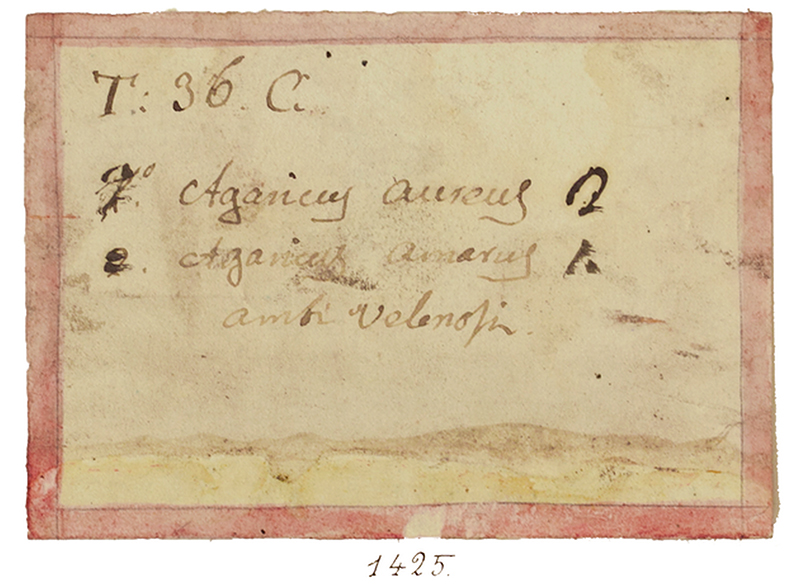 T: 36. C.
Agaricus aureus 2
2. Agaricus amarus 1.
ambi Velenosi.
1425.